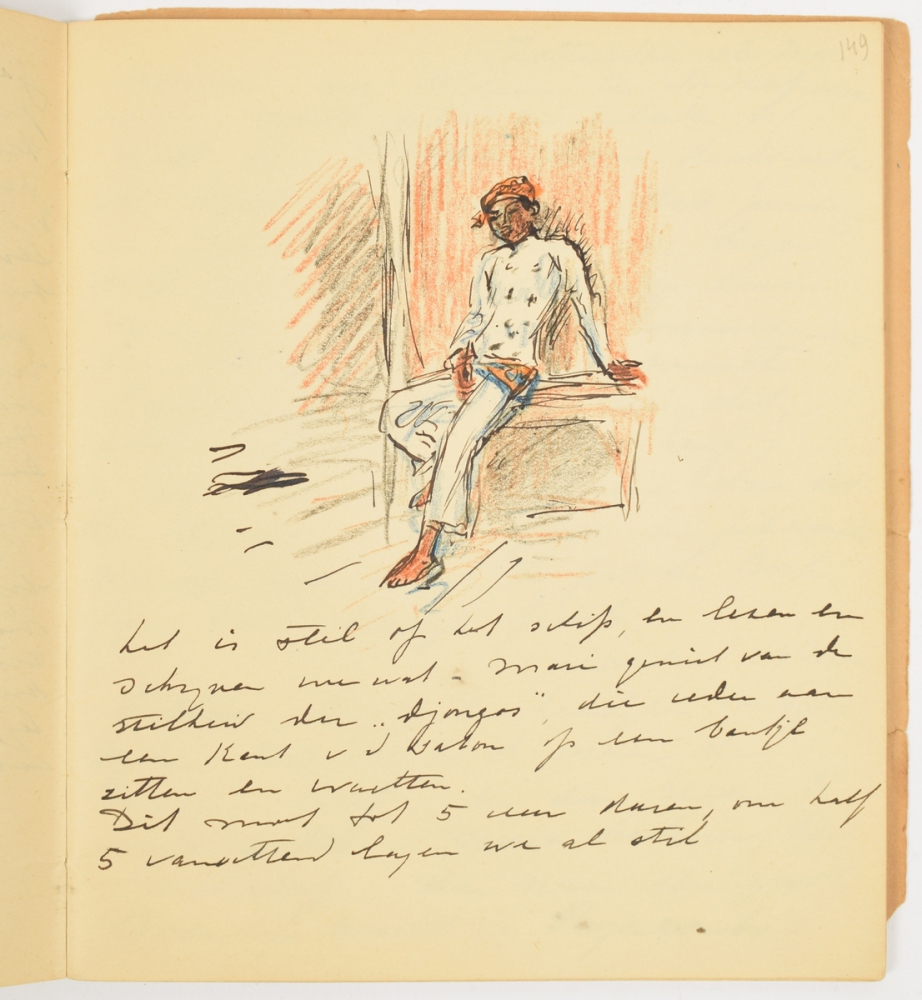 149
het is stil op het schip, en lezen en
schrijven we wat - Marie geniet van de
stilheid der „djongos", die ieder aan
een kant v d salon op een bankje
zitten en wachten.
Dit moet tot 5 uur duren, om half
5 vanochtend lagen we al stil